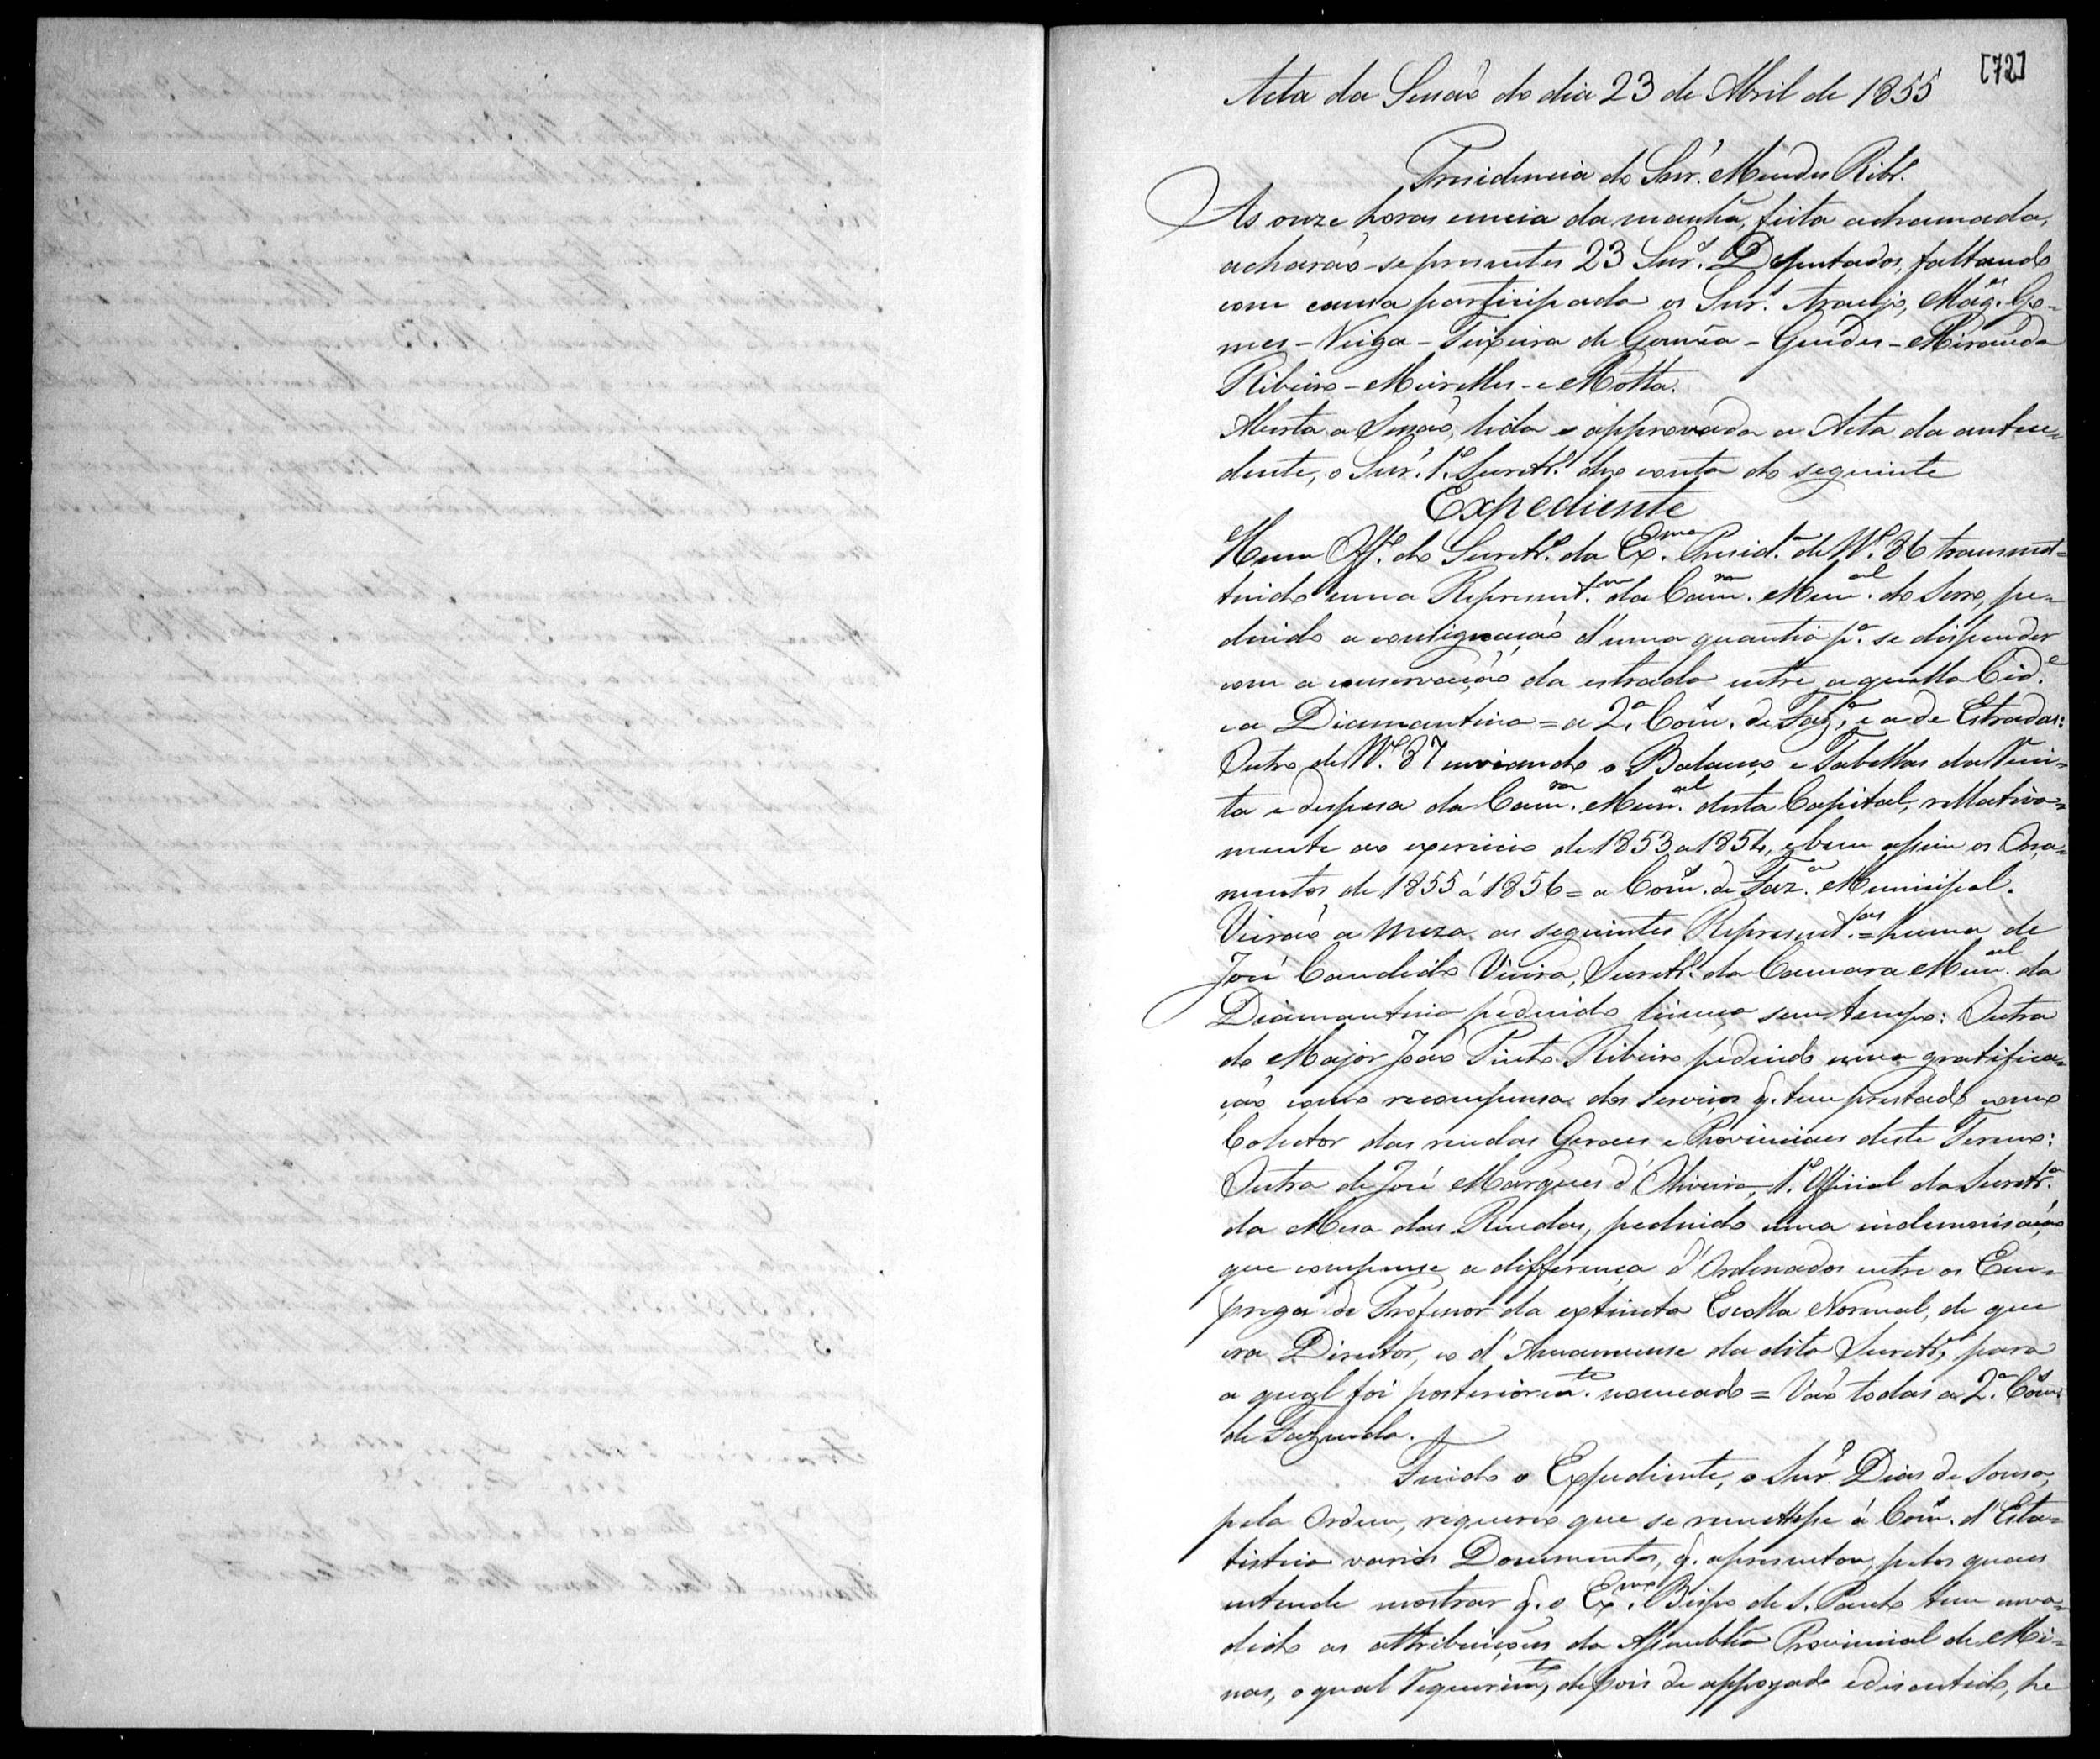 [72]
Acta da Sessaõ do dia 23 de Abril de 1855
Presidencia do Snr. Mendes Ribr.º
As onze horas e meia da manhã, feita a chamada,
acharaõ-se presentes 23 Snr.s Deputados, faltando
com causa participada os Snr.s Araujo, Mag.es Go-
mes - Veiga - Teixeira de Gouvêa - Guedes - Miranda
Ribeiro - Meirelles - e Motta.
Aberta a Sessaõ, lida e approvada a Acta da antece-
dente, o Snr. 1.º Secretr.º deo conta do seguinte
Expediente
Hum Off.º do Secretr.º da Ex.ma Presid.ª de N.º 36 transmit-
tindo uma Represent.am da Cam.ra Mun.al do Serro, pe-
dindo a consignaçaõ d'uma quantia p.ª se dispender
com a conservaçaõ da estrada entre aquella Cid.e
e a Diamantina = a 2.ª Com. de Faz.ª, e a de Estradas:
Outro de N.º 37 enviando o Balanço e Tabellas da Recei-
ta e despesa da Cam.ra Mun.al desta Capital, rellativa-
mente ao exercicio de 1853 a 1854, e bem assim os Orça-
mentos de 1855 á 1856 = a Com. de Faz.ª Municipal.
Vieraõ a meza as seguintes Represent.ões = huma de
José Candido Vieira, Secretr.º da Camara Mun.al da
Diamantina pedindo licença sem tempo: Outra
do Major Joaõ Pinto Ribeiro pedindo uma gratifica-
çaõ como recompensa dos serviços q. tem prestado como
Colletor das rendas Geraes e Provinciaes deste Termo:
Outra de José Marques d'Oliveira, 1.º Official da Secretr.ª
da Mesa das Rendas, pedindo uma indemnisaçaõ
que compense a differença d'Ordenados entre os Em-
prego de Professor da extincta Escolla Normal, de que
era Director, e o d'Amanuense da dita Secretr.ª, para
a qual foi posteriorm.te nomeado = Vaõ todas a 2.ª Com.
de Fazenda.
Findo o Expediente, o Snr. Dias de Sousa,
pela Ordem, requereo que se remettesse á Com. d'Esta-
tistica varios Documentos, q. apresentou, pelos quaes
entende mostrar q. o Ex.mo Bispo de S. Paulo tem inva-
dido as attribuições da Assembléa Provincial de Mi-
nas, o qual Requerim.to, depois de appoyado e discutido, he